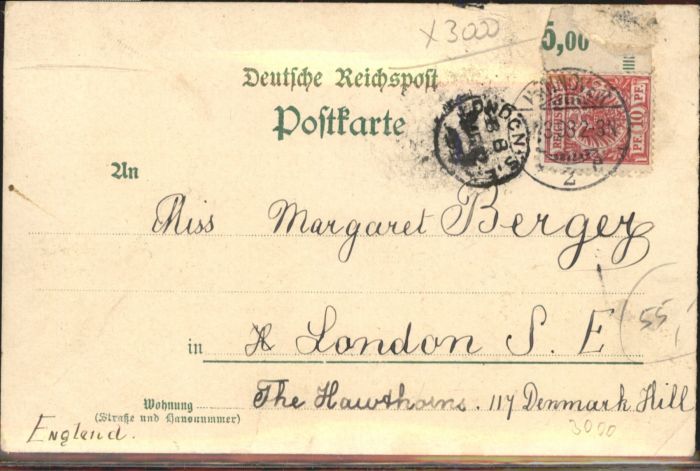 x3000
5,00
Deutsche Reichspost
Postkarte
LONDON. S.E.
10 PF.
2
An
Miss Margaret Berger
55,
in London S. E
Wohnung
(Straße und Hausnummer)
The Hawthorns. 117 Denmark Hill
England.
3000